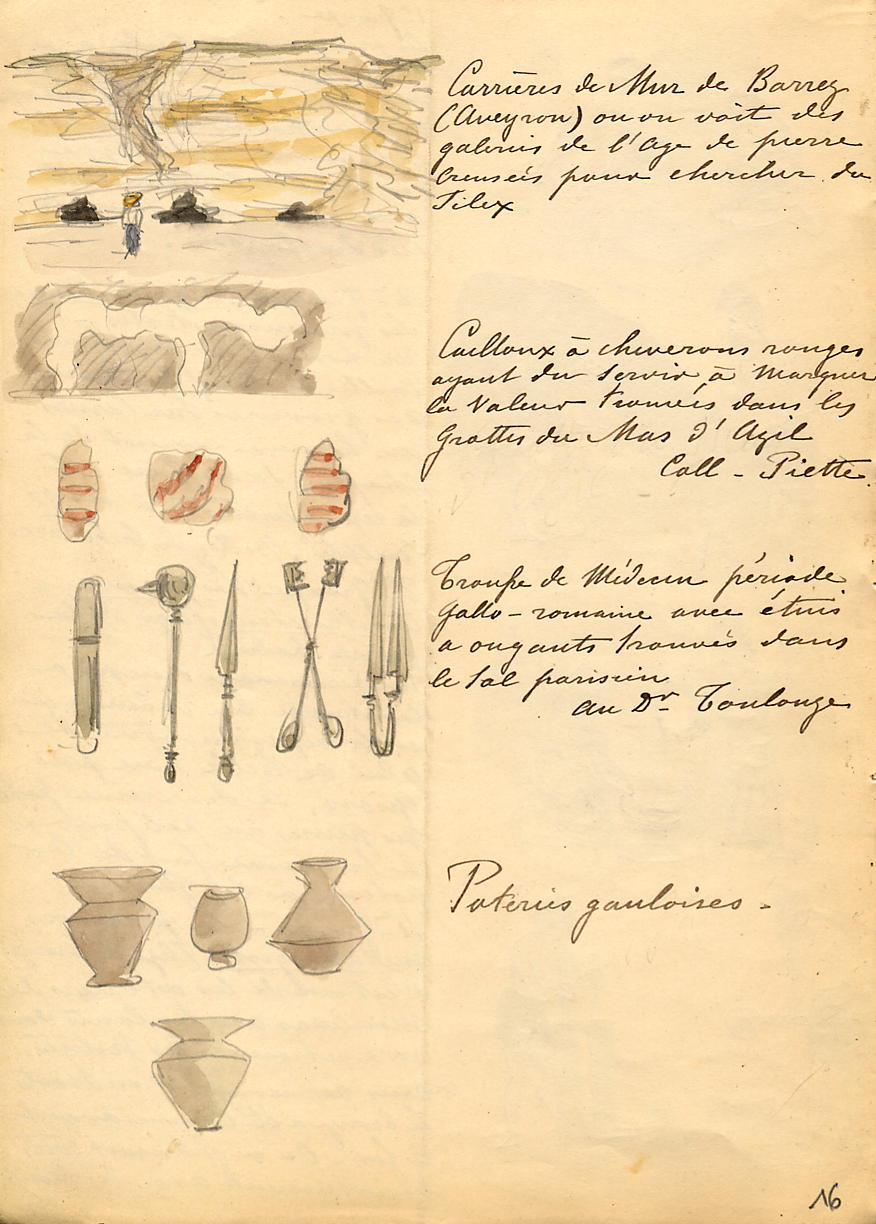 Carrières de Mur de Barrez
(Aveyron) ou on voit des
galeries de l'age de pierre
creusées pour chercher du
Silex
Cailloux à cheverons rouges
ayant du servir à marquer
la valeur trouvés dans les
Grottes du Mas d'Azil
Coll - Piette
Trousse de Médecin période
Gallo-romaine avec étuis
a onguants trouvés dans
le sol parisien
au Dr Toulouze
Poteries gauloises -
16